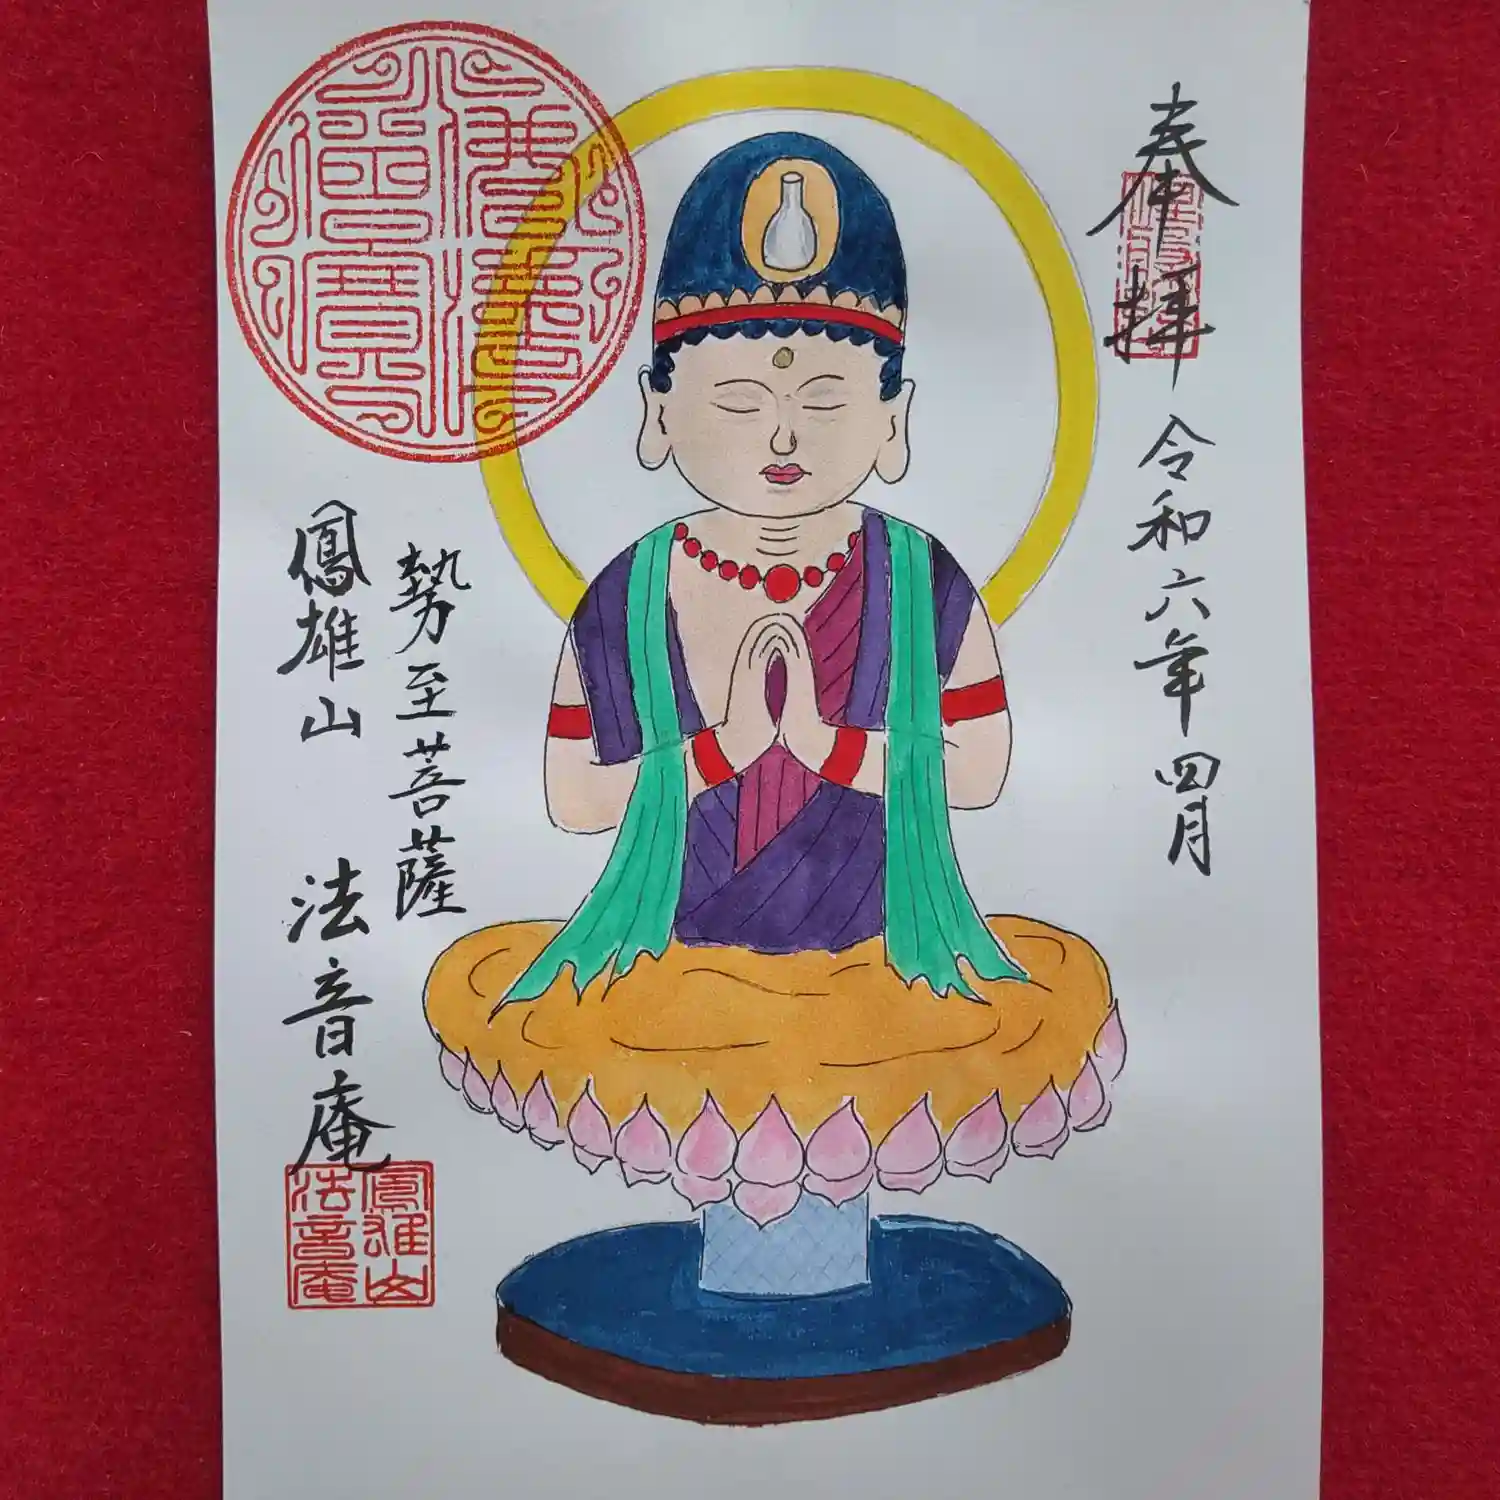 奉拝
令和六年四月
勢至菩薩
鳳雄山 法音庵
佛法僧寳
鳳雄山
法音庵